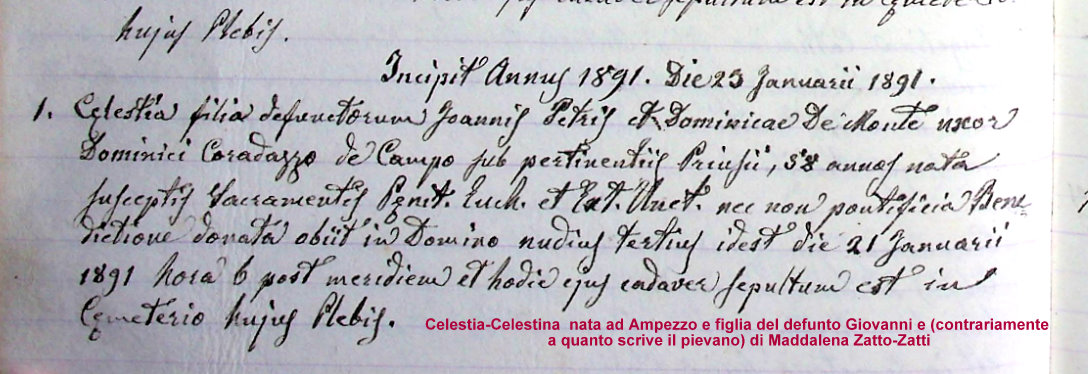 sepultum est in
hujus Plebis.
Incipit Annus 1891. Die 23 Januarii 1891.
1. Celestia filia defunctorum Joannis Petris et Dominicae De Monte uxor
Dominici Coradazzo de Campo sub pertinentiis Priusii, 58 annos nata
susceptis Sacramentis Pęnit. Euch. et Ext. Unct. nec non pontificia Bene
dictione donata obiit in Domino nudius tertius idest die 21 Januarii
1891 hora 6 post meridiem et hodie ejus cadaver sepultum est in
Cęmeterio hujus Plebis.
Celestia-Celestina nata ad Ampezzo e figlia del defunto Giovanni e (contrariamente
a quanto scrive il pievano) di Maddalena Zatto-Zatti